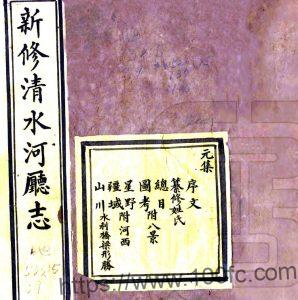 新修清水河廳志
元集
序文
纂修姓氏
總目附八景
圖考
星野附河西
疆域
山川水利橋梁形勝
https://www.100fc.com